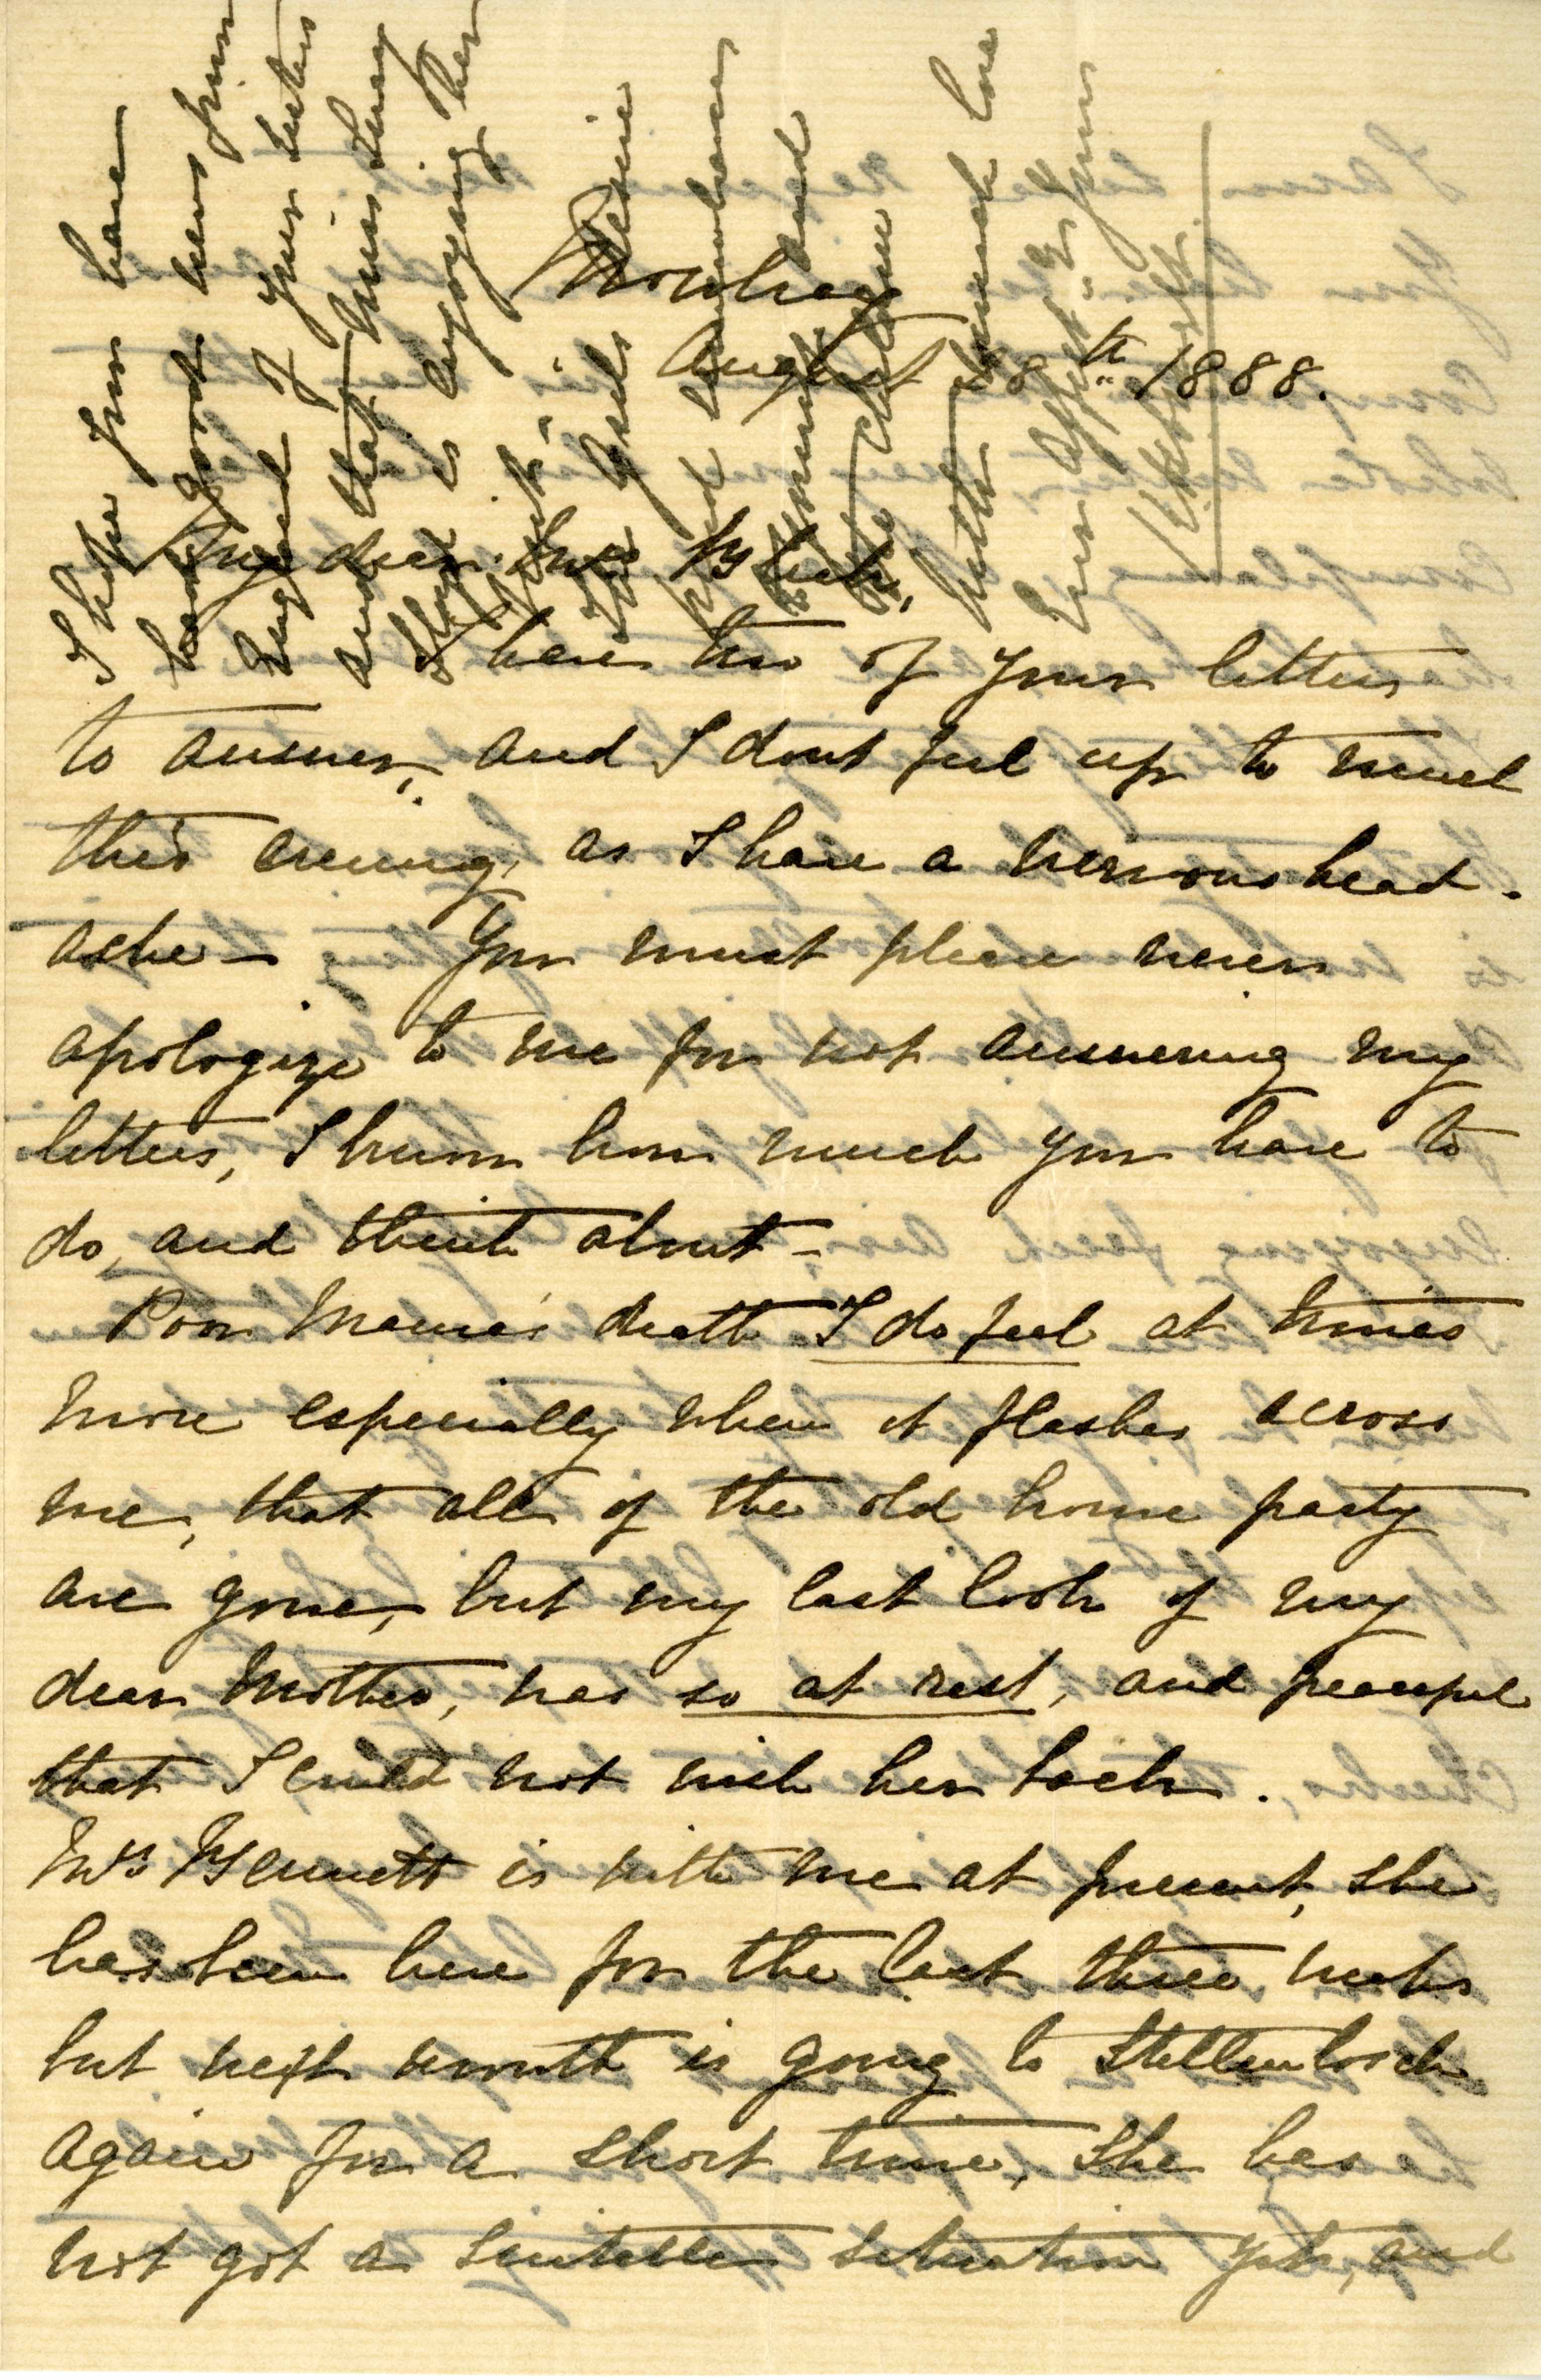 August 28th 1888.
My dear Mrs Bleek,
I have two of your letters
to answer, and I dont feel up to much
this evening, as I have a nervous head-
ache — You must please never
apologize to me for not answering my
letters, I know how much you have to
do, and think about —
Poor Mama's death I do feel at times
more especially when it flashes across
me, that all of the old home party
are gone, but my last look of my
dear Mother, was so at rest, and peaceful
that I could not wish her back.
Mrs Bennett is with me at present, she
has been here for the last three weeks
but next month is going to Stellenbosch
again for a short time, She has
not got a suitable situation yet, and
I hope you have
had good news from
England of your sisters
and that Miss Lucy
Lloyd is enjoying her
kind remembrances
to and
the children
with much love